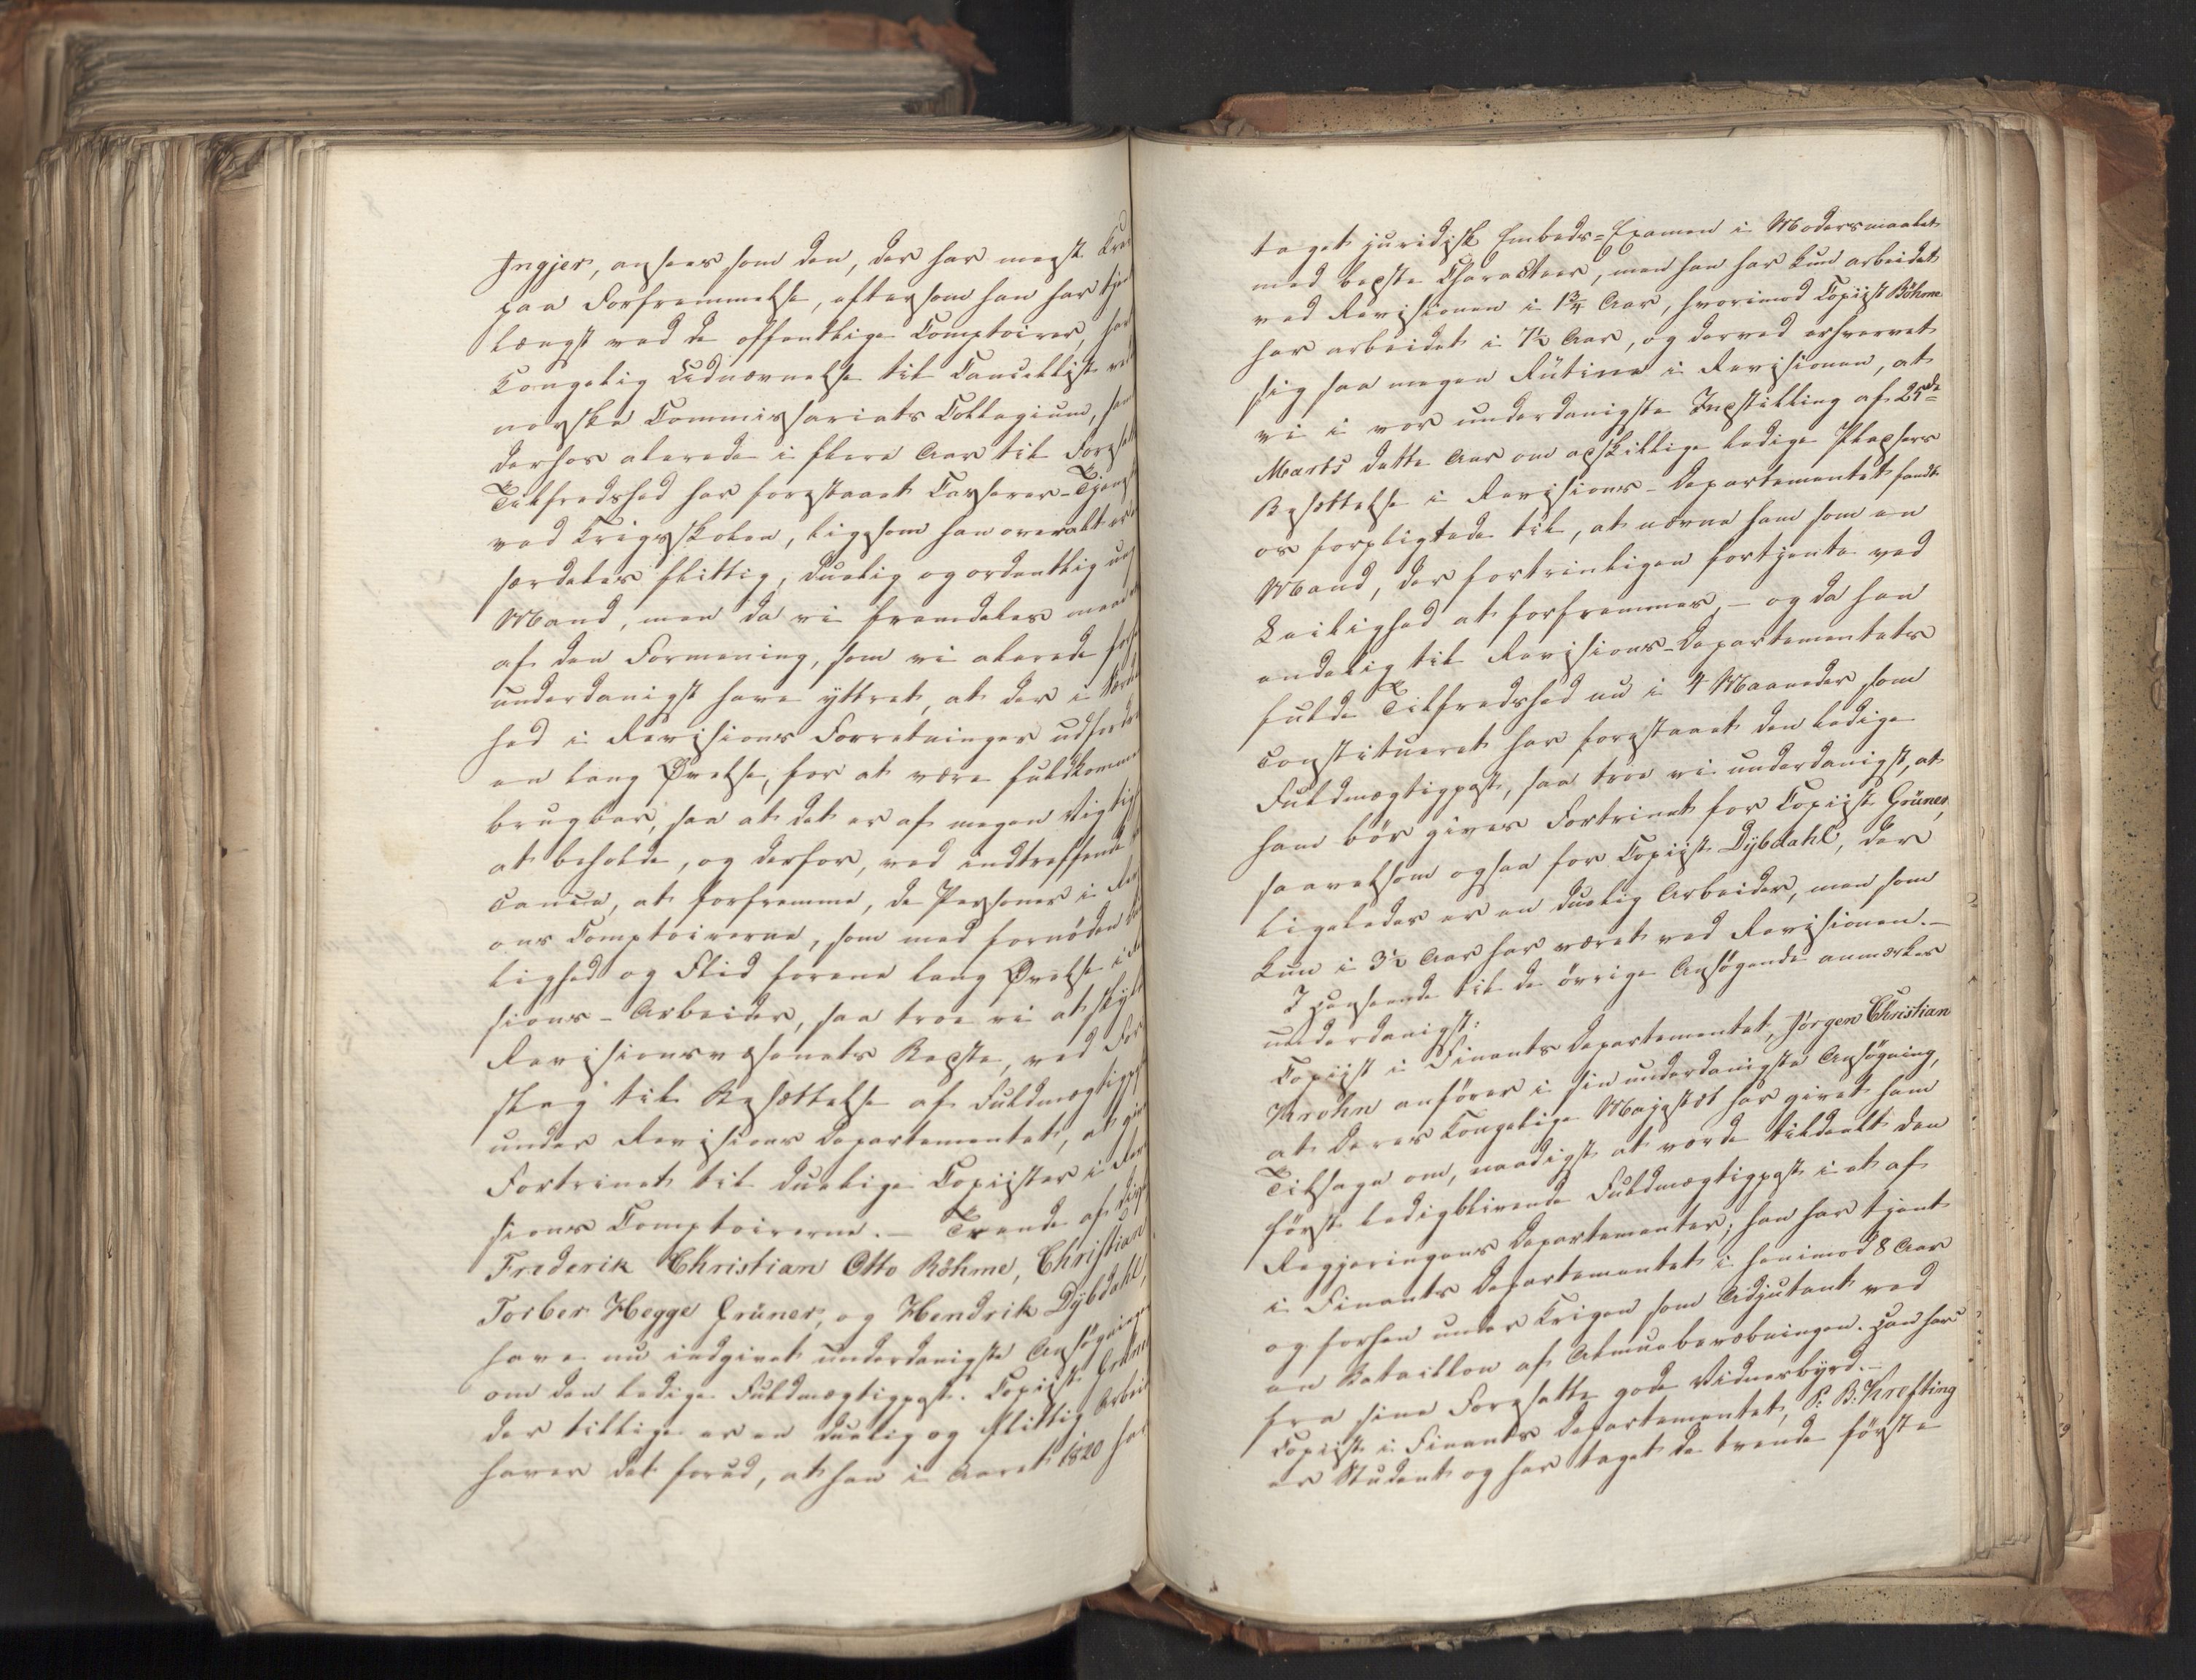 Ingjer, ansees som den, der har meest Krav
paa Forfremmelse, eftersom han har tjent
længst ved de offentlige Comptoirer, har
Kongelig Udnævnelse til Cancellist ved
norske Commissariats Collegium, samt
derhos allerede i flere Aar til Foresattes
Tilfredshed har forestaaet Casserer-Tjenesten
ved Krigsskolen, ligesom han overalt er en
særdeles flittig, duelig og ordentlig ung
Mand, men da vi fremdeles maae
af den Formening, som vi allerede før
underdanigst have yttret, at der i Færdig
hed i Revisions Forretninger udfordres
en lang Øvelse, for at være fuldkommen
brugbar, saa at det er af megen Vigtighed
at beholde, og derfor, ved indtreffende Va
cance, at forfremme, de Personer i Revisi
ons Comptoirerne, som med fornøden Due
lighed og Flid forene lang Øvelse i Revi
sions-Arbeider, saa troe vi at skylde
Revisionsvæsenets Bedste, ved For
slag til Besættelse af Fuldmægtigposter
under Revisions Departementet, at give
Fortrinet til duelige Copiister i Revi
sions Comptoirerne. – Trende af disse
Frederik Christian Otto Böhme, Christian
Torber Hegge Grüner, og Hendrik Dÿbdahl,
have nu indgivet underdanigste Ansøgninger
om den ledige Fuldmægtigpost. Copiist Grüner
der tillige er en duelig og flittig Arbeider
haver det forud, at han i Aaret 1820 har
taget juridisk Embeds-Examen i Modersmaalet
med bedste Charakteer, men han har kun arbeidet
ved Revisionen i 1¾ Aar, hvorimod Copiist Böhme
har arbeidet i 7½ Aar, og derved erhvervet
sig saa megen Rutine i Revisionen, at
vi i vor underdanigste Indstilling af 25de
Marts dette Aar om adskillige ledige Pladsers
Besættelse i Revisions-Departementet fandt
os forpligtede til, at nævne ham som en
Mand, der fortrinligen fortjente ved
Leilighed at forfremmes, – og da han
endelig til Revisions-Departementets
fulde Tilfredshed nu i 4 Maaneder som
Constitueret har forestaaet den ledige
Fuldmægtigpost, saa troe vi underdanigst, at
ham bør gives Fortrinet for Copiist Grüner,
saavelsom ogsaa for Copiist Dÿbdahl, der
ligeledes er en duelig Arbeider, men som
kun i 3½ Aar har været ved Revisionen. –
I Henseende til de øvrige Ansøgende anmærkes
underdanigst:
Copiist i Finants Departementet, Jørgen Christian
Krohn anfører i sin underdanigste Ansøgning,
at Deres Kongelige Majestæt har givet ham
Tilsagn om, naadigst at vorde tildeelt den
først ledigblivende Fuldmægtigpost i et af
Regjeringens Departementer; han har tjent
i Finants Departementet i henimod 8 Aar
og forhen under Krigen som Adjutant ved
en Bataillon af Almuebevæbningen. Han har
fra sine Foresatte gode Vidnesbÿrd. –
Copiist i Finants Departementet, P. B. Krefting
er Student og har taget de tvende første